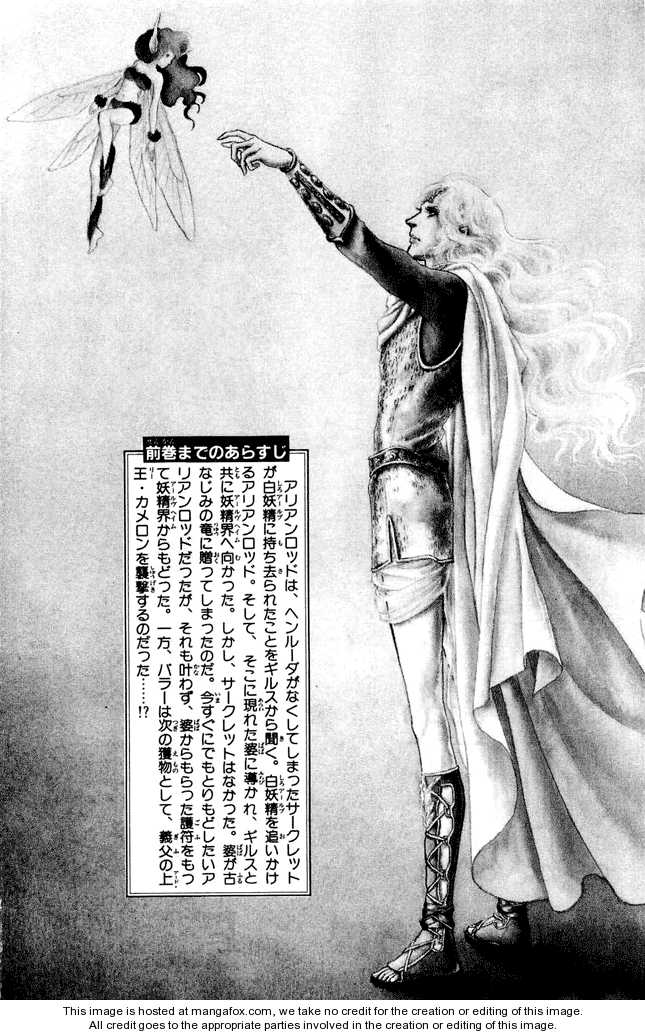 前巻までのあらすじ
アリアンロッドは、ヘンルーダがなくしてしまったサークレット
が白妖精に持ち去られたことをギルスから聞く。白妖精を追いかけ
るアリアンロッド。そして、そこに現れた婆に導かれ、ギルスと
共に妖精界へ向かった。しかし、サークレットはなかった。婆が古
なじみの竜に贈ってしまったのだ。今すぐにでもとりもどしたいア
リアンロッドだったが、それも叶わず、婆からもらった護符をもっ
て妖精界からもどった。一方、バラーは次の獲物として、義父の上
王・カメロンを襲撃するのだった……!?
This image is hosted at mangafox.com, we take no credit for the creation or editing of this image.
All credit goes to the appropriate parties involved in the creation or editing of this image.